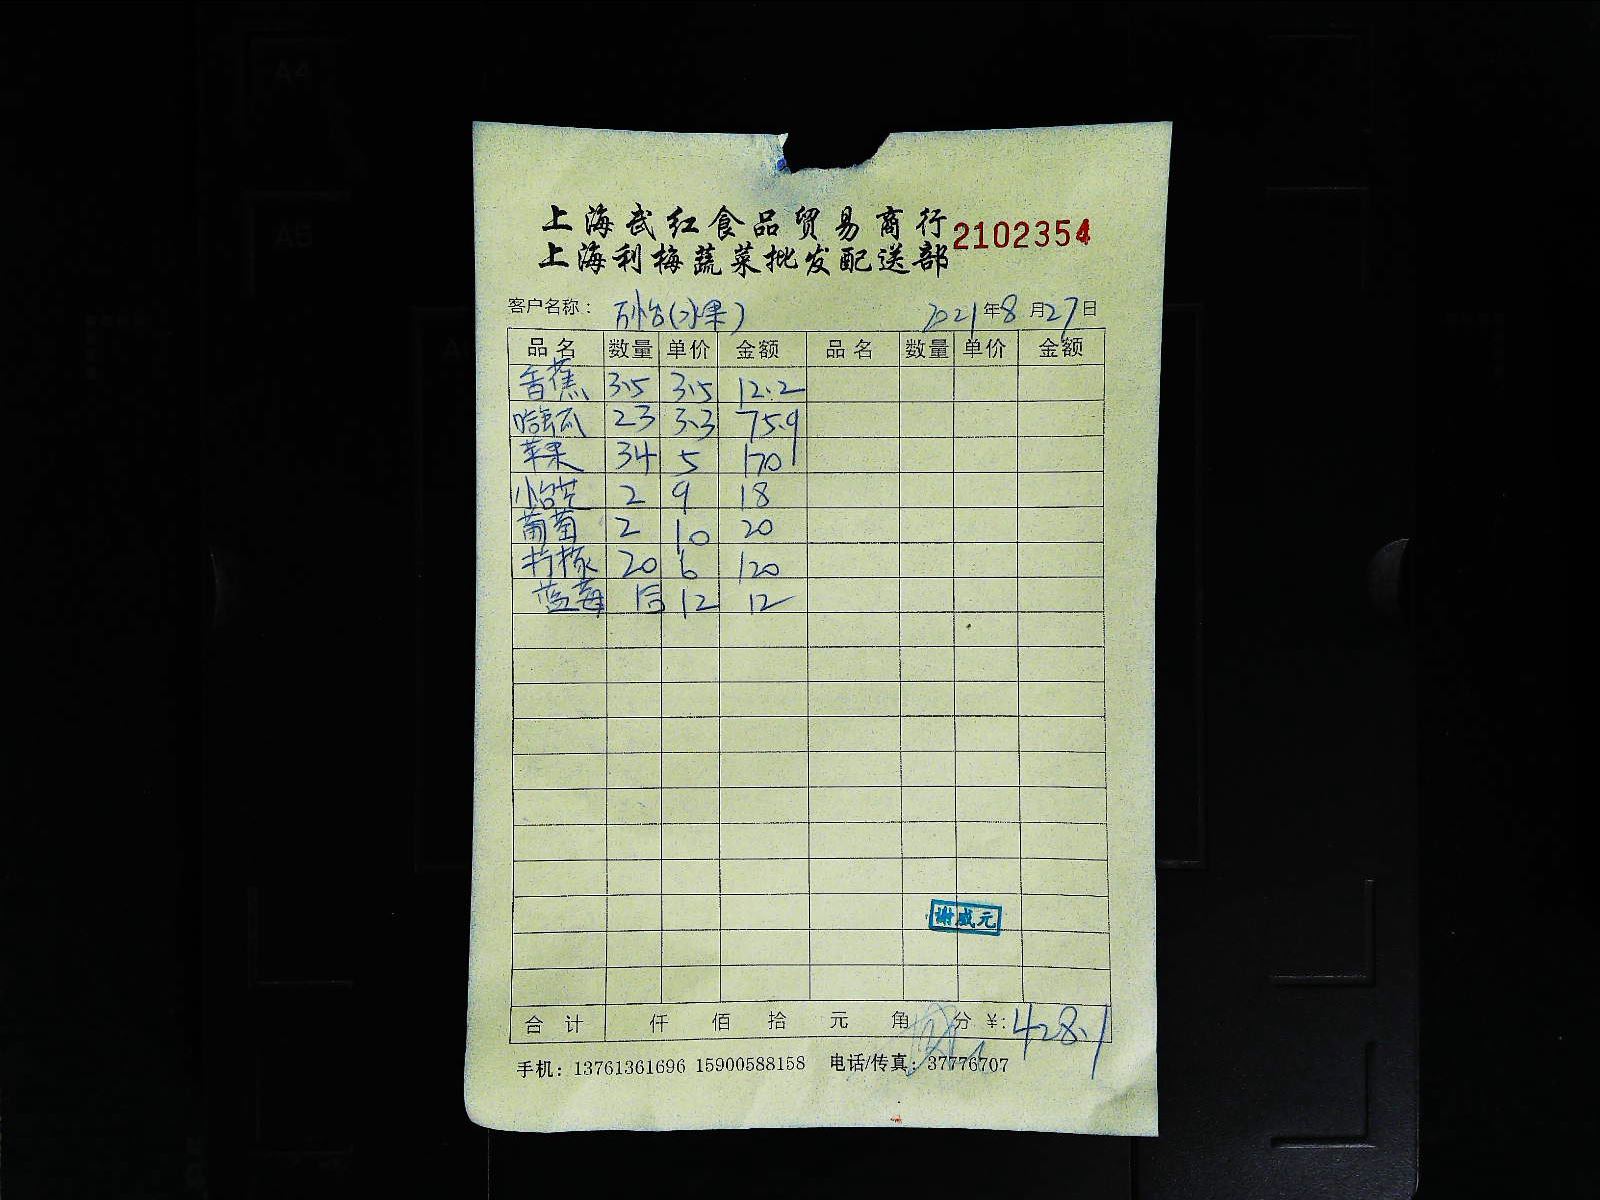 上海武红食品贸易商行
上海利梅蔬菜批发配送部
2102354
客户名称： (水果) 2021年8月27日
品名 数量 单价 金额 品名 数量 单价 金额
香蕉 3.5 3.5 12.2
哈密瓜 23 3.3 75.9
苹果 34 5 170
2 9 18
葡萄 2 10 20
柠檬 20 6 120
蓝莓 1 12 12
谢威元
合计 仟 佰 拾 元 角 分 ¥: 428.1
手机：13761361696 15900588158 电话/传真：37776707
A4
A5